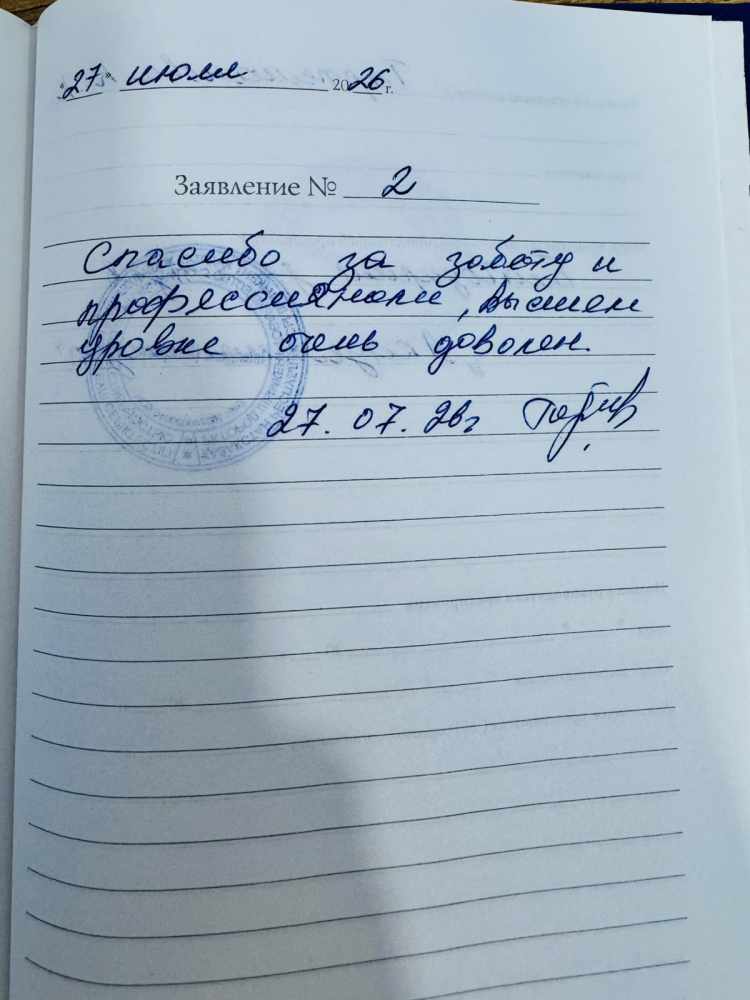 "27" июля 2026 г.
Заявление № 2
Спасибо за заботу и
профессионали, высшем
уровне очень доволен.
27. 07. 26г